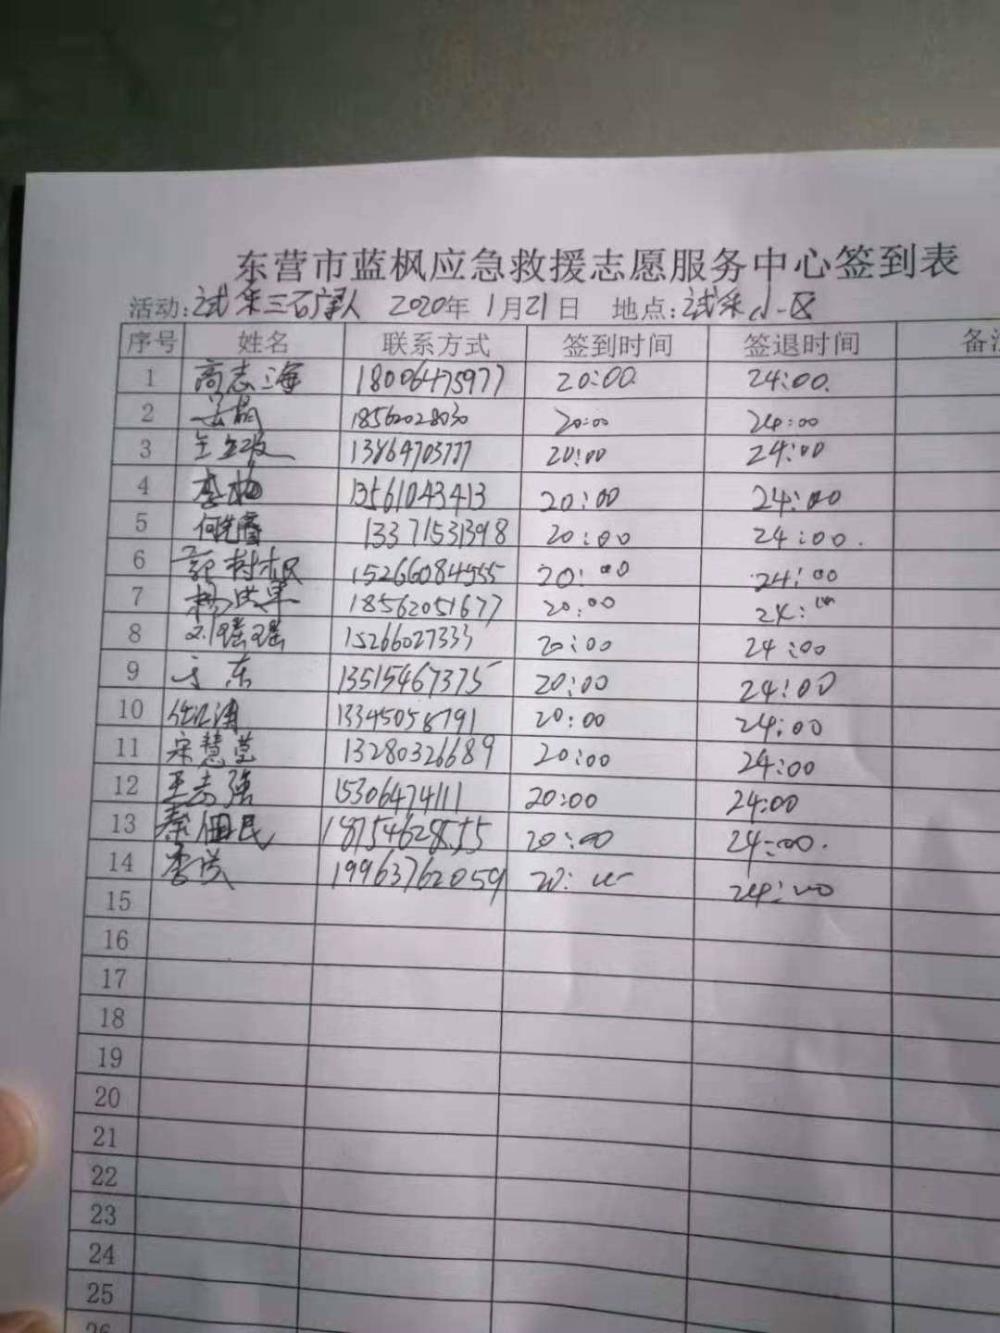 东营市蓝枫应急救援志愿服务中心签到表
活动:试采三矿 2020年 1月21日 地点:试采小区
序号 姓名 联系方式 签到时间 签退时间 备注
1 高志海 18006475977 20:00 24:00.
2 18562028030 20:00 24:00
3 13864703777 20:00 24:00
4 李梅 13561043413 20:00 24:00
5 13371531398 20:00 24:00.
6 郭树根 15266084555 20:00 24:00
7 杨洪军 18562051677 20:00 24:00
8 刘瑶瑶 15266027333 20:00 24:00
9 于东 13515467375 20:00 24:00
10 13345058791 20:00 24:00
11 宋慧莹 13280326689 20:00 24:00
12 王志强 15306474111 20:00 24:00
13 秦佃民 18754628555 20:00 24:00.
14 19963762059 20:00 24:00
15
16
17
18
19
20
21
22
23
24
25
26